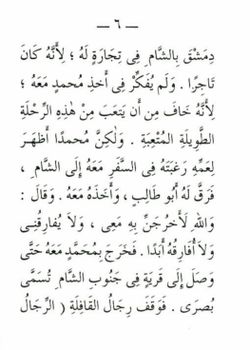 — ٦ —
دِمَشْقَ بِالشَّامِ فِى تِجَارَةٍ لَهُ ؛ لِأَنَّهُ كَانَ
تَاجِرًا . وَلَم يُفَكِّرْ فِى أَخذِ محمدٍ مَعَهُ ؛
لِأَنَّهُ خَافَ مِن أَن يَتعَبَ مِنْ هٰذِهِ الرِّحْلَةِ
الطَّوِيلَةِ المُتْعِبَةِ . وَلٰكِنَّ محمدًا أَظْهَرَ
لِعَمِّهِ رَغبَتَهُ فِى السَّفَرِ مَعَهُ إِلَى الشَّامِ ،
فَرَقَّ لَهُ أَبُو طَالِبٍ ، وَأَخَذَهُ مَعَهُ . وَقَالَ :
وَاللهِ لَأَخرُجَنَّ بِهِ مَعِى ، وَلَا يُفَارِقُنِى
وَلَا أُفَارِقُهُ أَبَدًا . فَخَرَجَ بِمُحَمَّدٍ مَعَهُ حَتَّى
وَصَلَ إِلَى قَريَةٍ فِى جَنُوبِ الشَّامِ تُسَمَّى
بُصرَى . فَوَقَفَ رِجَالُ القَافِلَةِ ( الرِّجَالُ